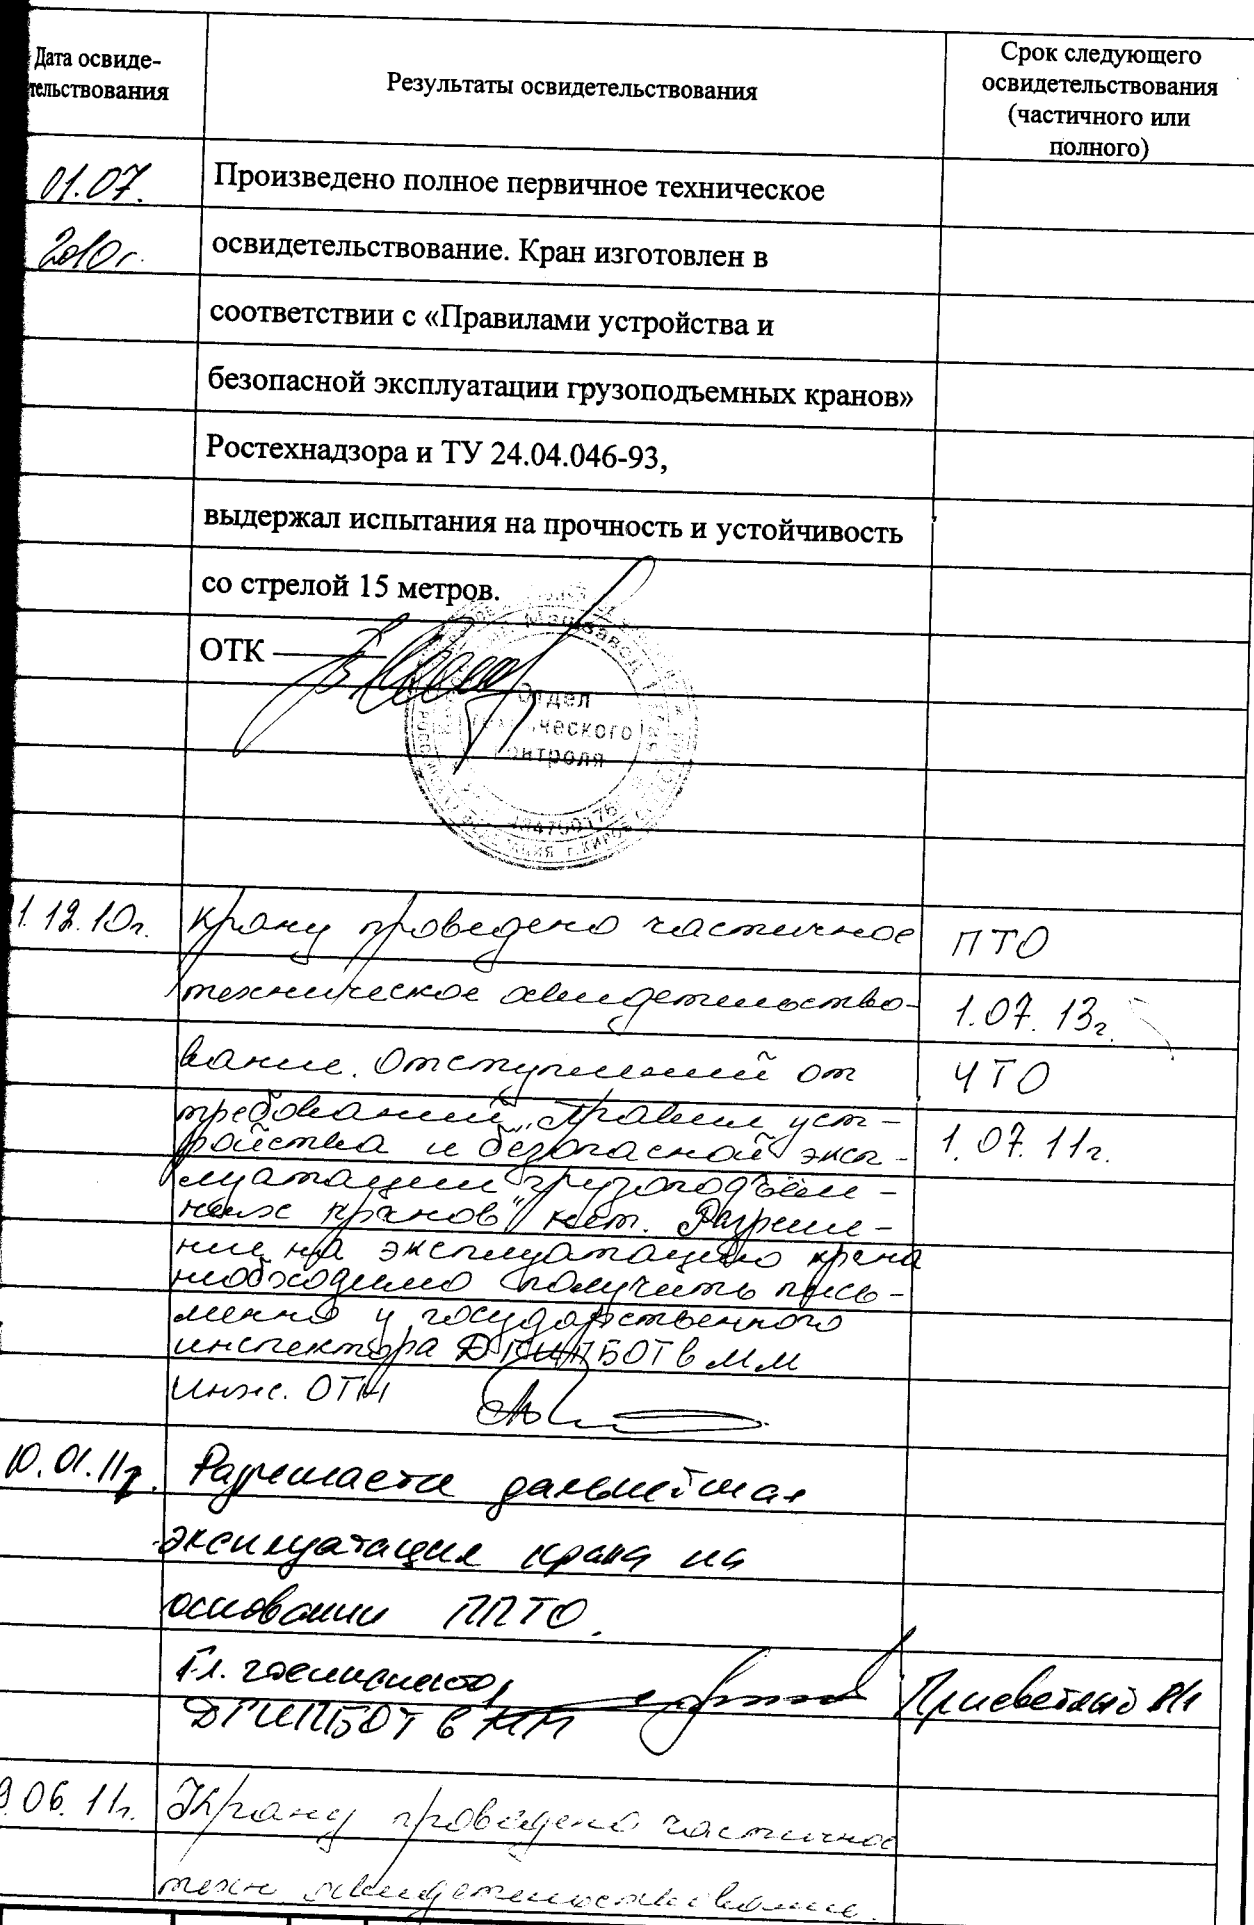 Дата освиде-
тельствования
Результаты освидетельствования
Срок следующего
освидетельствования
(частичного или
полного)
01.07.
Произведено полное первичное техническое
2010г.
освидетельствование. Кран изготовлен в
соответствии с «Правилами устройства и
безопасной эксплуатации грузоподъемных кранов»
Ростехнадзора и ТУ 24.04.046-93,
выдержал испытания на прочность и устойчивость
со стрелой 15 метров.
ОТК
Отдел
технического
контроля
1.12.10г. Крану проведено частичное ПТО
техническое освидетельство- 1.07.13г.
вание. Отступлений от ЧТО
требований „Правил уст-
ройства и безопасной экс- 1.07.11г.
плуатации грузоподъем-
ных кранов" нет. Разреше-
ние на эксплуатацию крана
необходимо получить пись-
менно у государственного
инспектора ДГИПБОТ в ММ
Инж. ОТН
10.01.11г. Разрешается дальнейшая
эксплуатация крана на
основании ППТО.
Гл. госинспектор
ДГИПБОТ в НН
Присветлый
9.06.11г. Крану проведено частичное
техн освидетельствование.